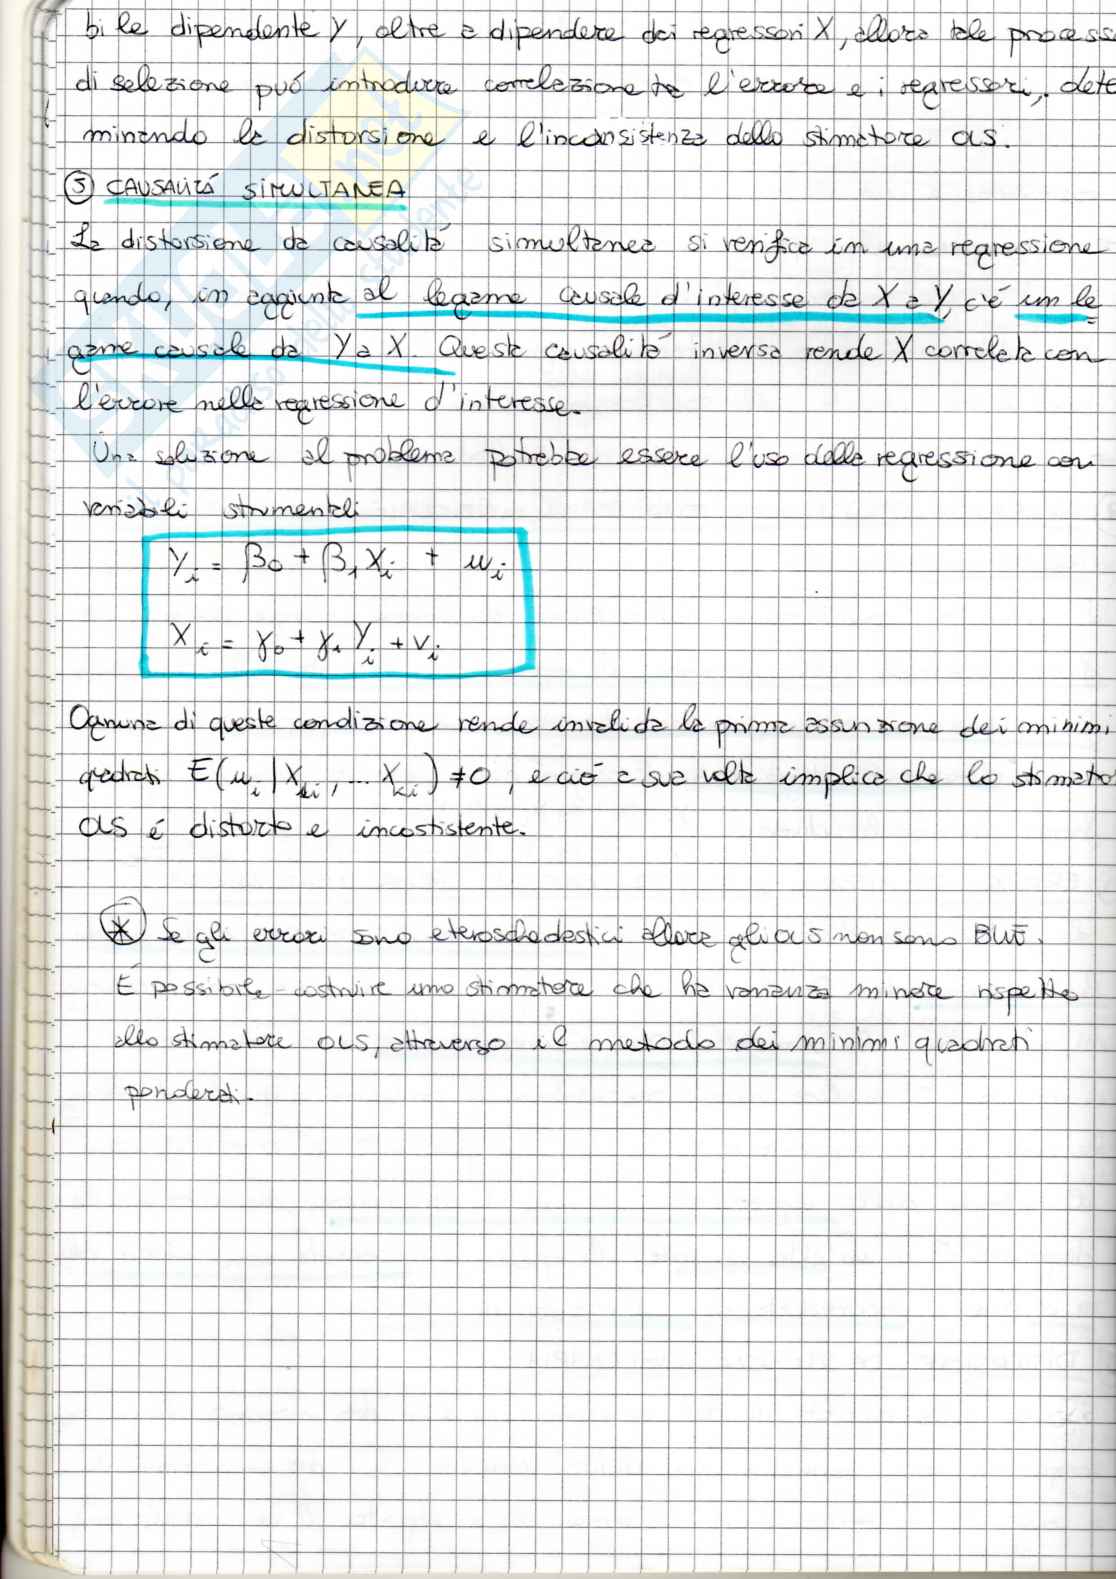 bile dipendente Y, oltre a dipendere dai regressori X, allora tale process
di selezione puó introdurre correlazione tra l'errore e i regressori, dete
minando la distorsione e l'inconsistenza dello stimatore OLS.
5 CAUSALITÁ SIMULTANEA
La distorsione da causalitá simultanea si verifica in una regressione
quando, in aggiunta al legame causale d'interesse da X a Y, c'é un le
game causale da Y a X. Questa causalitá inversa rende X correlata con
l'errore nella regressione d'interesse.
Una soluzione al problema potrebbe essere l'uso della regressione con
variabili strumentali
Yi = β0 + β1 Xi + ui
Xi = γ0 + γ1 Yi + vi
Ognuna di queste condizione rende invalida la prima assunzione dei minimi
quadrati E(ui | X1i, ... Xki) ≠ 0, e ció a sua volta implica che lo stimato
OLS é distorto e incostistente.
* Se gli errori sono eteroschedastici allora gli OLS non sono BLUE.
É possibile costruire uno stimatore che ha varianza minore rispetto
allo stimatore OLS, attraverso il metodo dei minimi quadrati
ponderati.